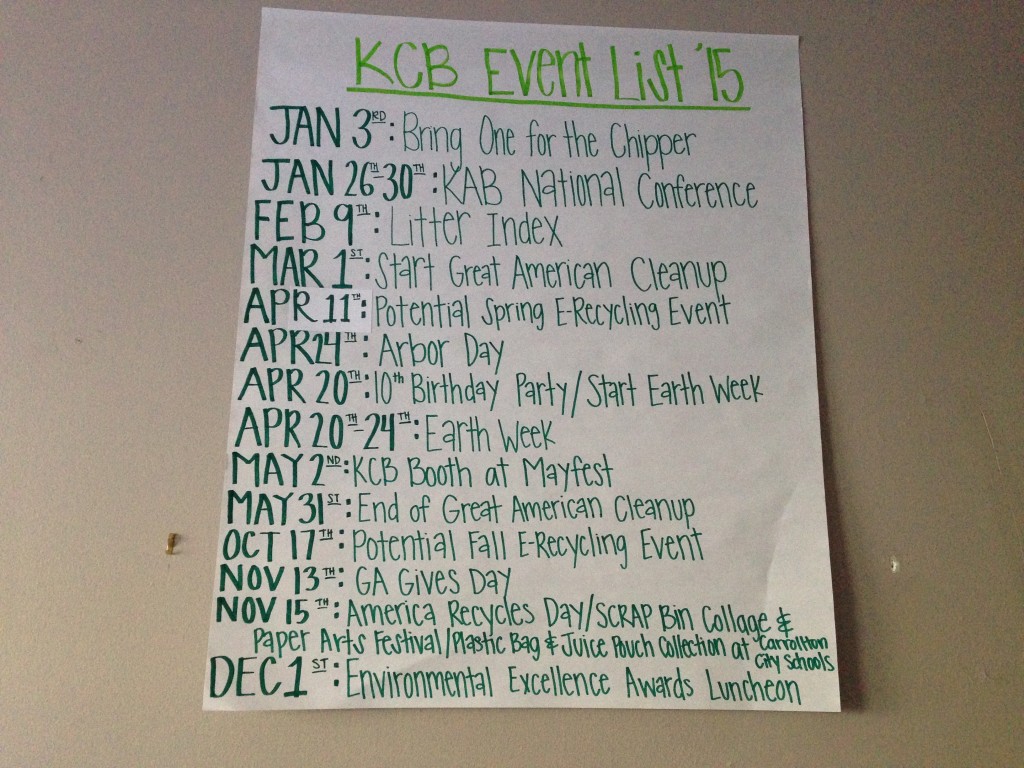 KCB Event List '15
JAN 3RD: Bring One for the Chipper
JAN 26TH-30TH: KAB National Conference
FEB 9TH: Litter Index
MAR 1ST: Start Great American Cleanup
APR 11TH: Potential Spring E-Recycling Event
APR 24TH: Arbor Day
APR 20TH: 10th Birthday Party/Start Earth Week
APR 20TH-24TH: Earth Week
MAY 2ND: KCB Booth at Mayfest
MAY 31ST: End of Great American Cleanup
OCT 17TH: Potential Fall E-Recycling Event
NOV 13TH: GA Gives Day
NOV 15TH: America Recycles Day/SCRAP Bin Collage &
Paper Arts Festival/Plastic Bag & Juice Pouch Collection at Carrollton
City Schools
DEC 1ST: Environmental Excellence Awards Luncheon